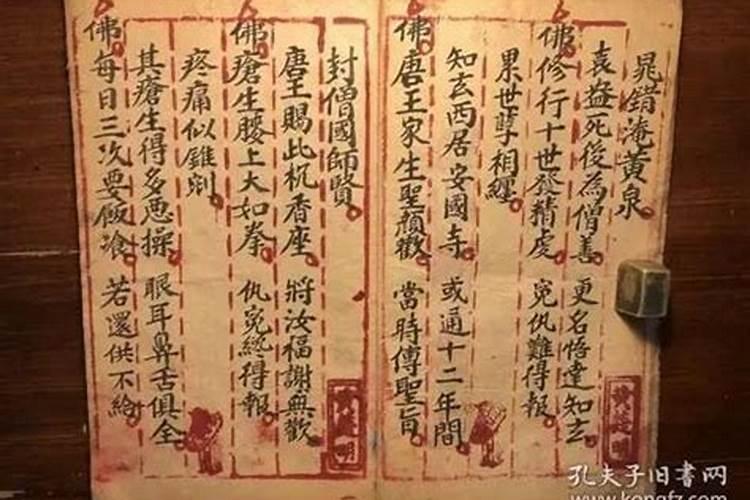 晁錯淹黄泉
袁盎死後為僧善 更名悟達知玄
佛 修行十世發精虔 冤仇難得報
累世孽相纏
知玄西居安國寺 或通十二年間
佛 唐王家生聖顏歡 當時傳聖旨
封僧國師賢
唐王賜此机香座 將汝福謝無歡
佛 瘡生腰上大如拳 仇冤終得報
疼痛似錐剜
其瘡生得多惡操 眼耳鼻舌俱全
佛 每日三次要飯飡 若還供不給
孔夫子旧书网